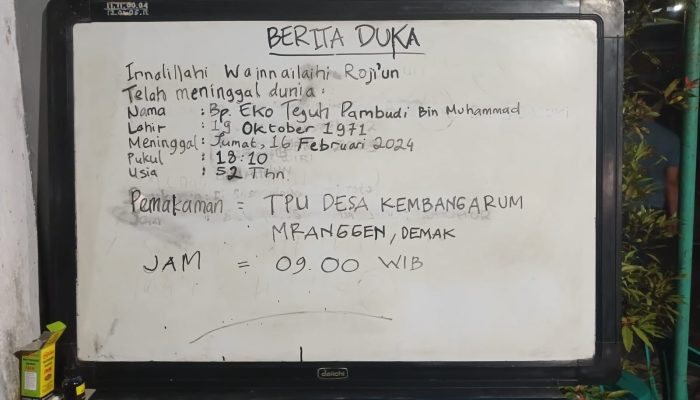 BERITA DUKA
Innalillahi Wainnailaihi Roji'un
Telah meninggal dunia :
Nama : Bp. Eko Teguh Pambudi Bin Muhammad
Lahir : 19 Oktober 1971
Meninggal : Jumat, 16 Februari 2024
Pukul : 18:10
Usia : 52 Thn
Pemakaman = TPU DESA KEMBANGARUM
MRANGGEN, DEMAK
JAM = 09.00 WIB
daiichi